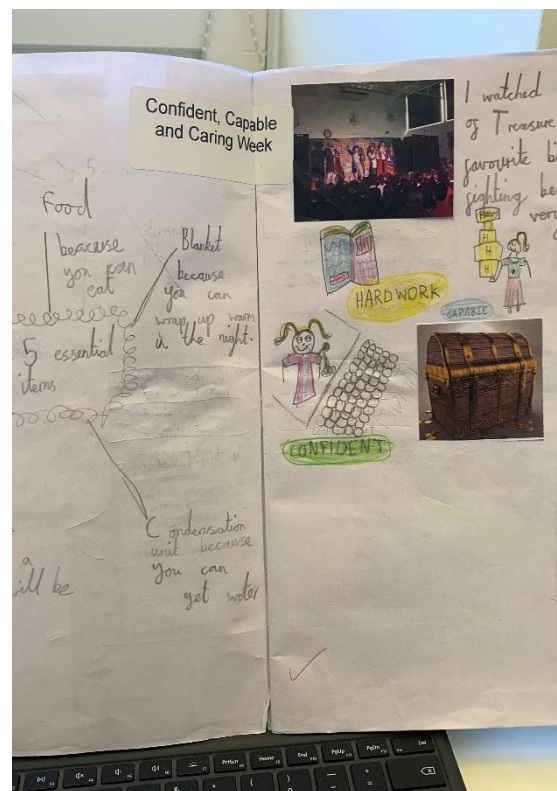 Confident, Capable
and Caring Week
Food
because
you can
eat
Blanket
because
you can
wrap up warm
in the night.
5 essential
items
Condensation
unit because
you can
get water
a
will be
I watched
of Treasure
favourite
fighting
very
HARDWORK
CAPABLE
H
H
H
CONFIDENT
PrtScn
Home
End
PgUp
PgDn
Del